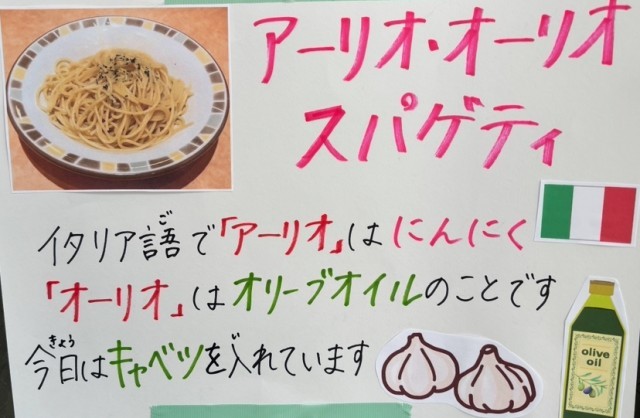 アーリオ・オーリオ
スパゲティ
イタリア語で「アーリオ」はにんにく
「オーリオ」はオリーブオイルのことです
今日はキャベツを入れています
olive
oil